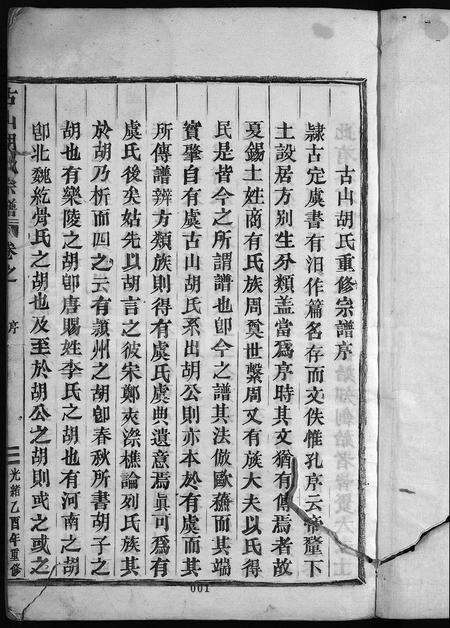 古山胡氏重修宗譜序
隸古定虞書有汨作篇名存而文佚惟孔序云帝釐下
土設居方別生分類蓋當爲序時其文猶有傳焉者故
夏錫土姓商有氏族周奠世繫周又有族大夫以氏得
民是皆今之所謂譜也卽今之譜其法倣歐蘓而其端
實肇自有虞古山胡氏系出胡公則亦本於有虞而其
所傳譜辨方類族則得有虞氏虞典遺意焉眞可爲有
虞氏後矣姑先以胡言之彼宋鄭夾漈樵論列氏族其
於胡乃析而四之云有潁州之胡卽春秋所書胡子之
胡也有樂陵之胡卽唐賜姓李氏之胡也有河南之胡
卽北魏紇骨氏之胡也及至於胡公之胡則或之或之
古山胡氏宗譜 卷之一 序 光緒乙酉年重修
001